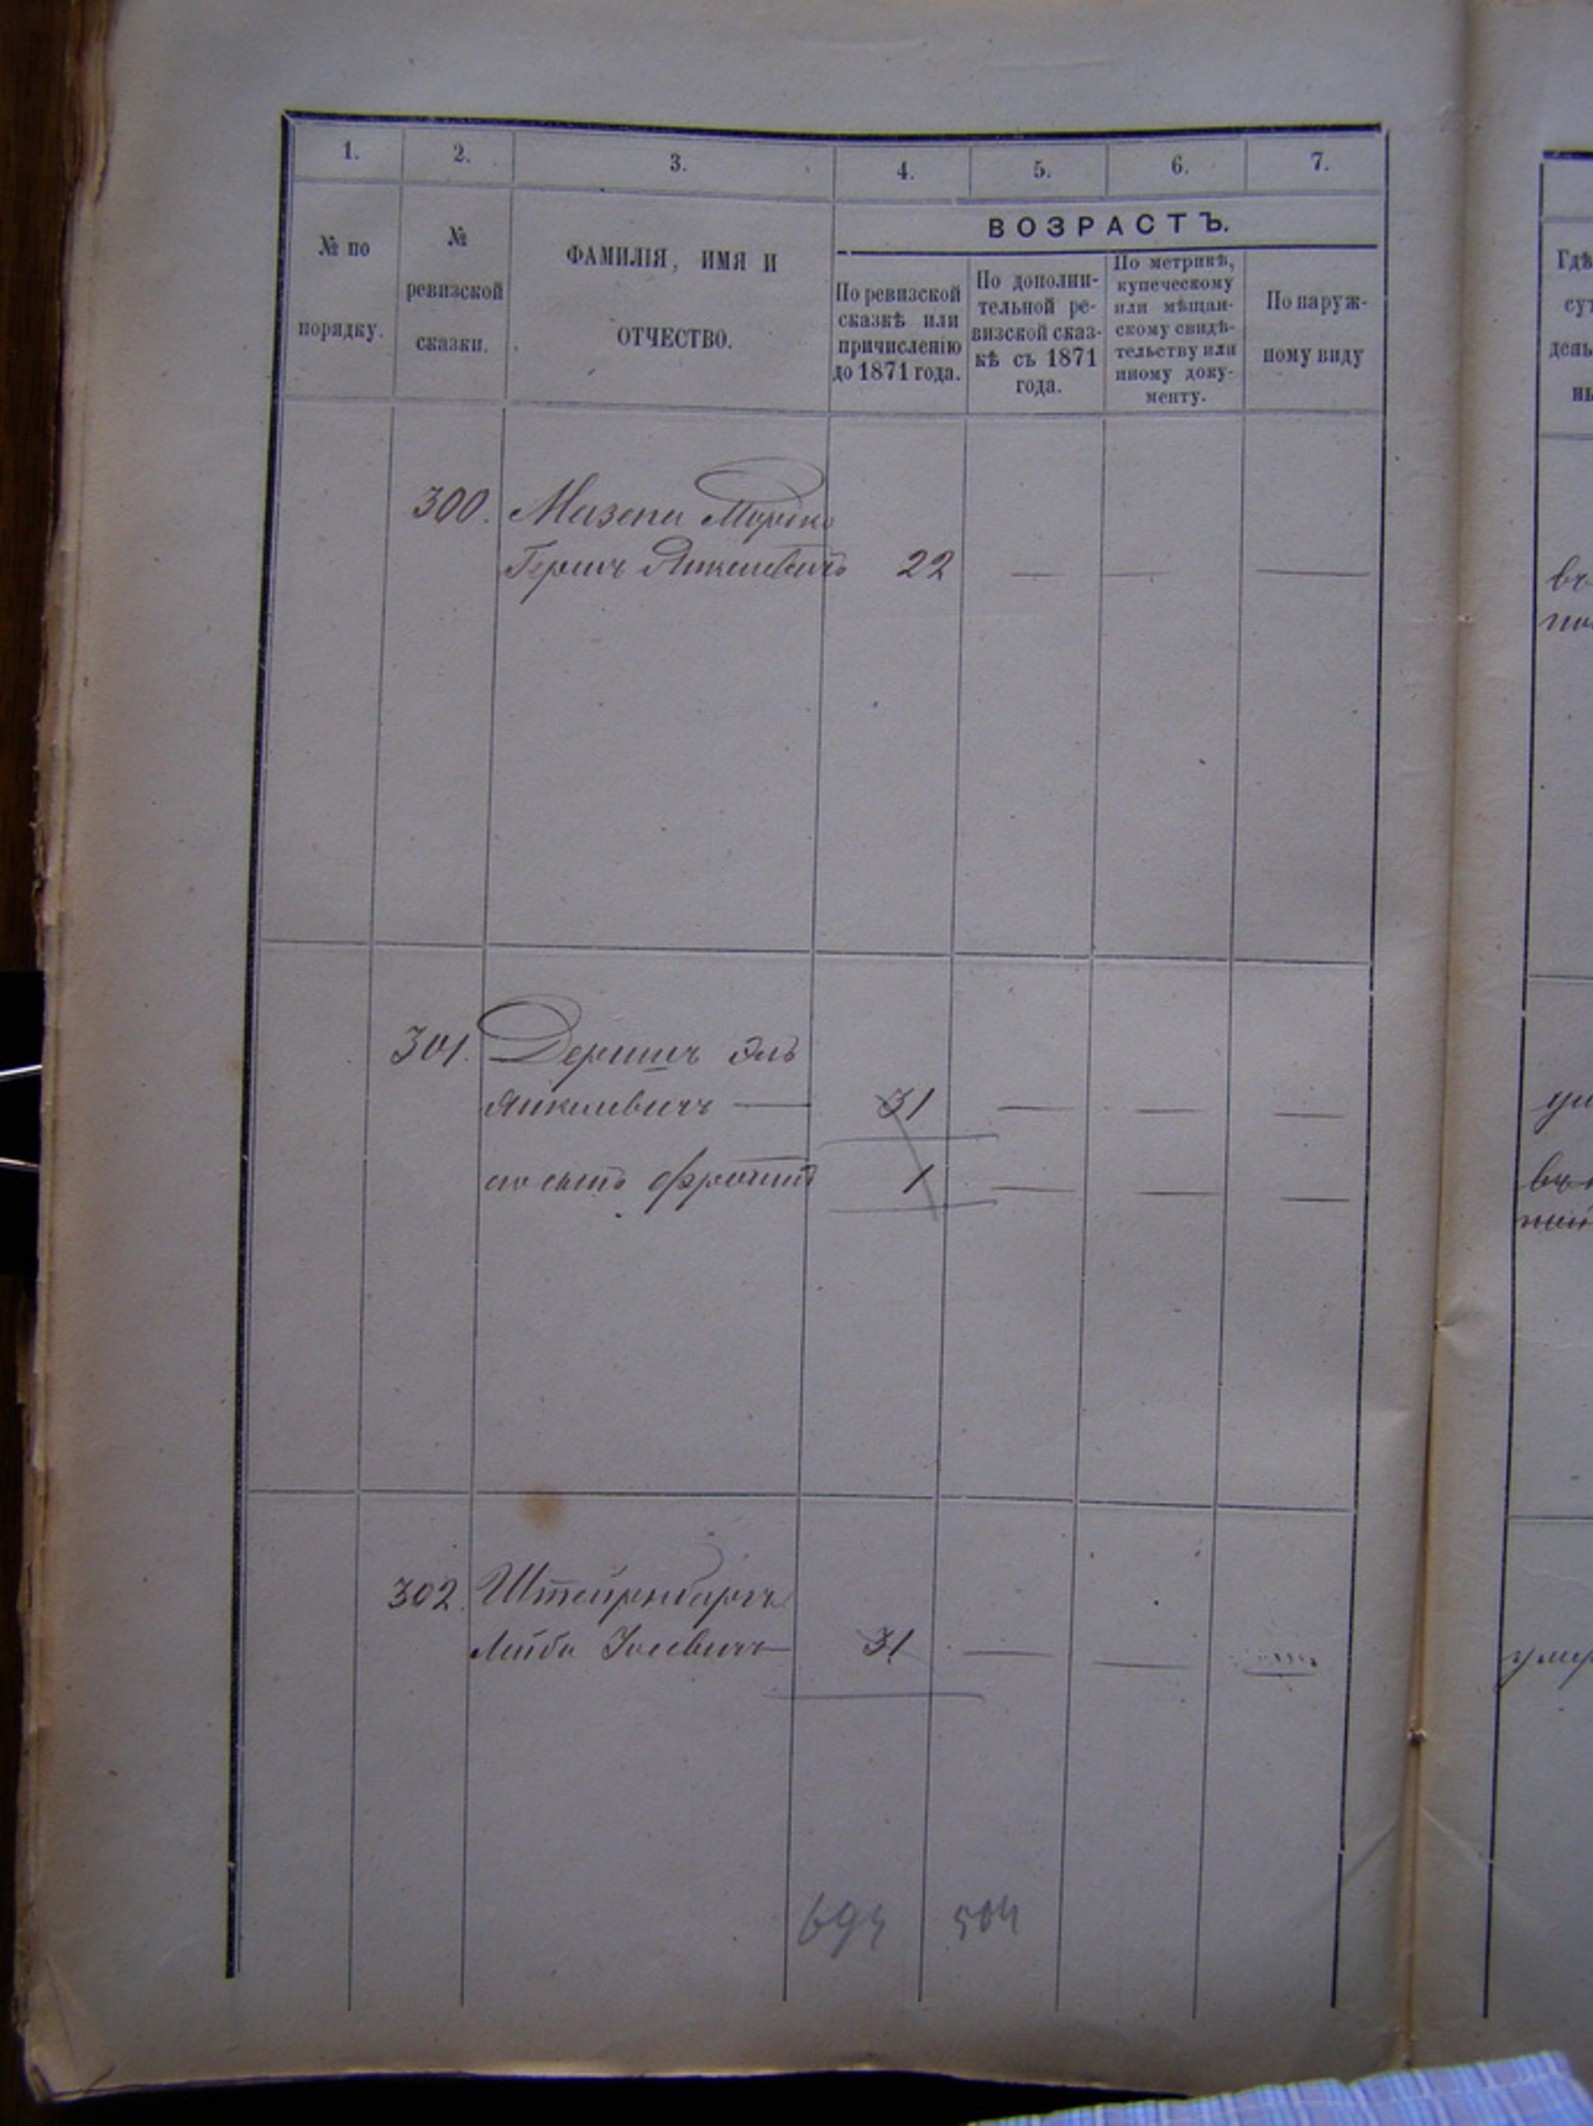 1. 2. 3. 4. 5. 6. 7.
№ по
порядку.
№
ревизской
сказки.
ФАМИЛІЯ, ИМЯ И
ОТЧЕСТВО.
ВОЗРАСТЪ.
По ревизской
сказкѣ или
причисленію
до 1871 года.
По дополни-
тельной ре-
визской сказ-
кѣ съ 1871
года.
По метрикѣ,
купеческому
или мѣщан-
скому свидѣ-
тельству или
иному доку-
менту.
По наруж-
ному виду
300. Мазепа Мордко
Гершъ Янкелевичъ 22 — — —
301. Эль
Янкелевичъ — 31 — — —
его сынъ Фроимъ 1 — — —
302. Штейренбаргъ
Лейба 31 — —
694 504
Гдѣ
сут
день
въ
по
въ
умер